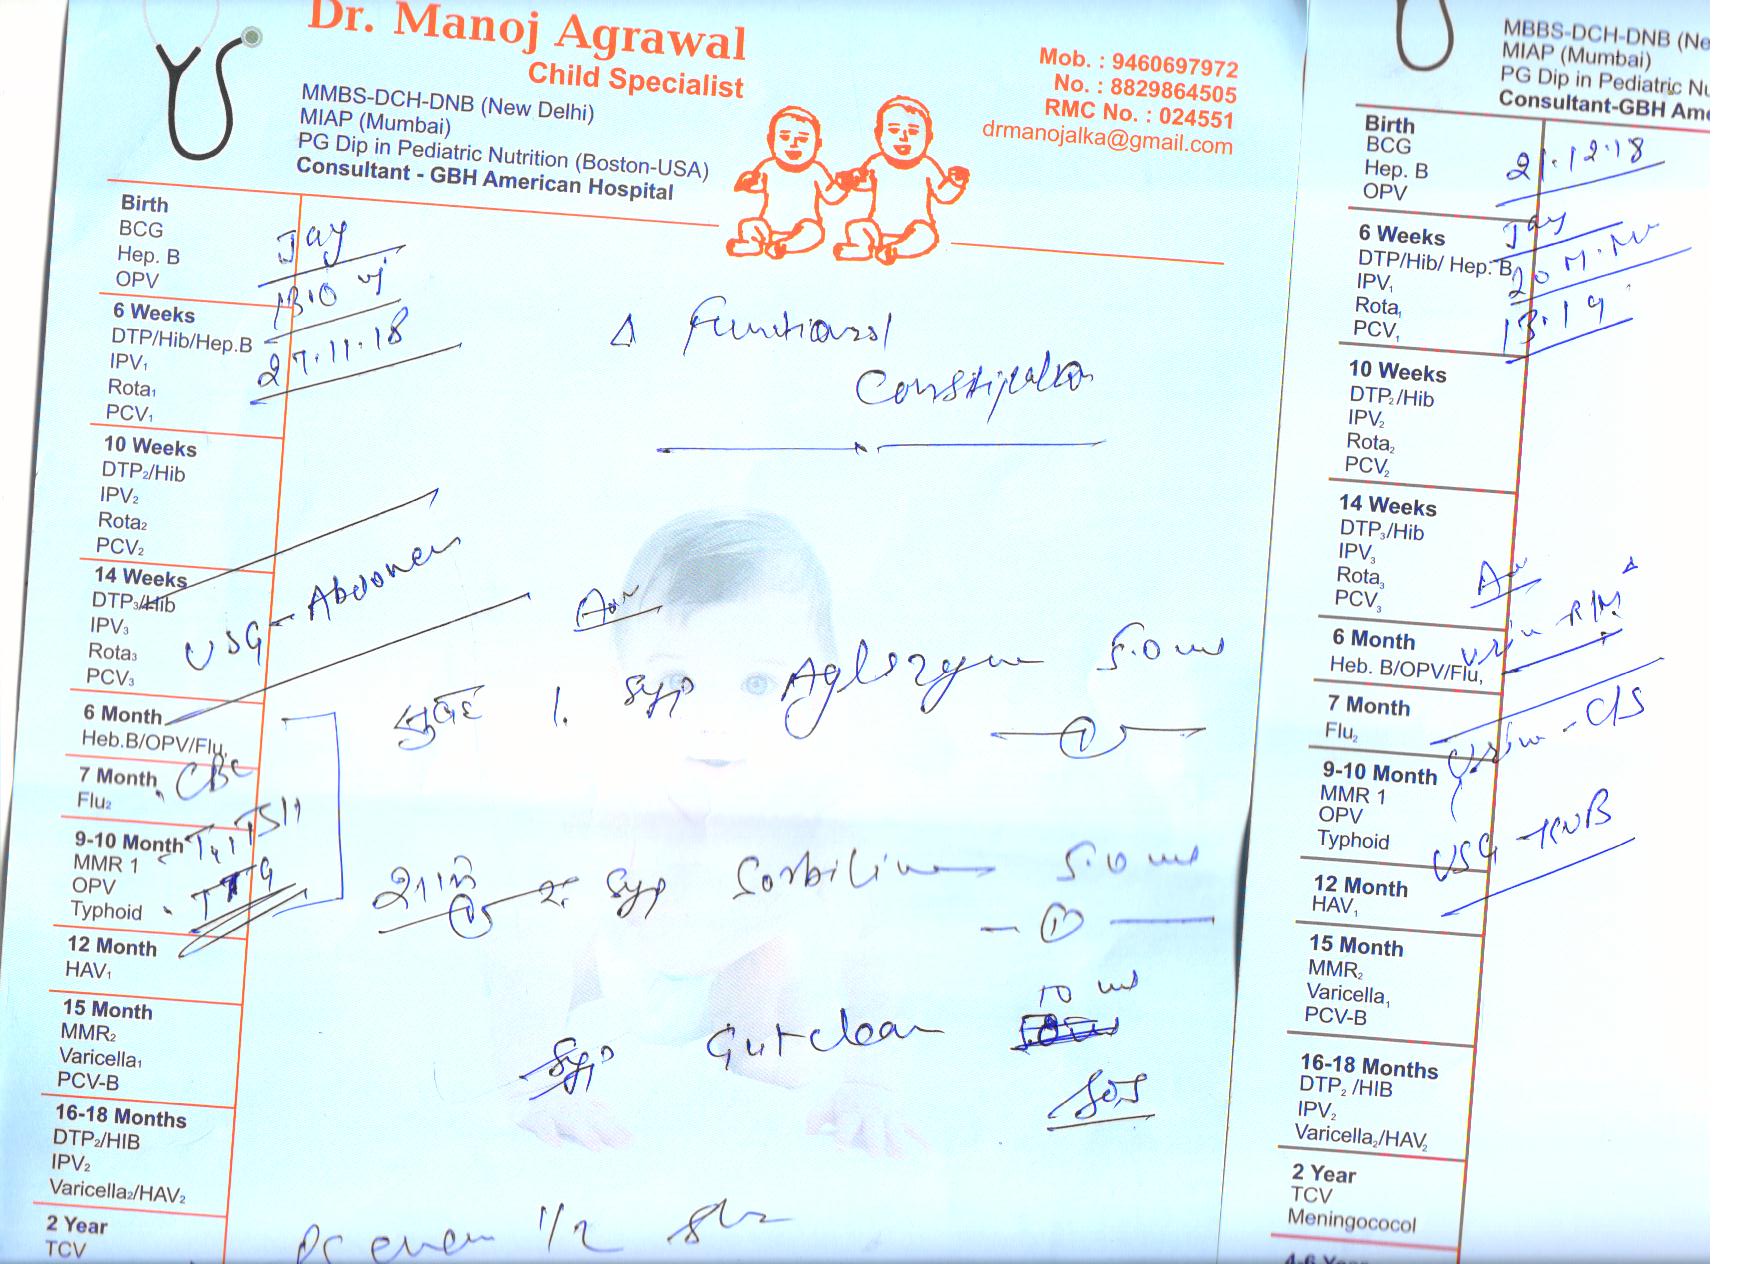 Dr. Manoj Agrawal
Child Specialist
MMBS-DCH-DNB (New Delhi)
MIAP (Mumbai)
PG Dip in Pediatric Nutrition (Boston-USA)
Consultant - GBH American Hospital
Mob. : 9460697972
No. : 8829864505
RMC No. : 024551
drmanojalka@gmail.com
Birth
BCG
Hep. B
OPV
6 Weeks
DTP/Hib/Hep.B
IPV₁
Rota₁
PCV₁
10 Weeks
DTP₂/Hib
IPV₂
Rota₂
PCV₂
14 Weeks
DTP₃/Hib
IPV₃
Rota₃
PCV₃
6 Month
Heb.B/OPV/Flu,
7 Month
Flu₂
9-10 Month
MMR 1
OPV
Typhoid
12 Month
HAV₁
15 Month
MMR₂
Varicella₁
PCV-B
16-18 Months
DTP₂/HIB
IPV₂
Varicella₂/HAV₂
2 Year
TCV
Jay
27.11.18
USG - Abdomen
CBC
TTG
Δ Functional
Constipation
1. Syp Aglozyme 5.0 ml
①
2. Syp Sorbiline 5.0 ml
①
Syp Gutclear 10 ml
SOS
1/2
MBBS-DCH-DNB (Ne
MIAP (Mumbai)
PG Dip in Pediatric Nu
Consultant-GBH Ame
Birth
BCG
Hep. B
OPV
6 Weeks
DTP/Hib/ Hep. B
IPV₁
Rota₁
PCV₁
10 Weeks
DTP₂/Hib
IPV₂
Rota₂
PCV₂
14 Weeks
DTP₃/Hib
IPV₃
Rota₃
PCV₃
6 Month
Heb. B/OPV/Flu,
7 Month
Flu₂
9-10 Month
MMR 1
OPV
Typhoid
12 Month
HAV₁
15 Month
MMR₂
Varicella₁
PCV-B
16-18 Months
DTP₂ /HIB
IPV₂
Varicella₂/HAV₂
2 Year
TCV
Meningococol
4-6 Year
21.12.18
Jay
13.19
Urine R/M
Urine - C/S
USG - KUB